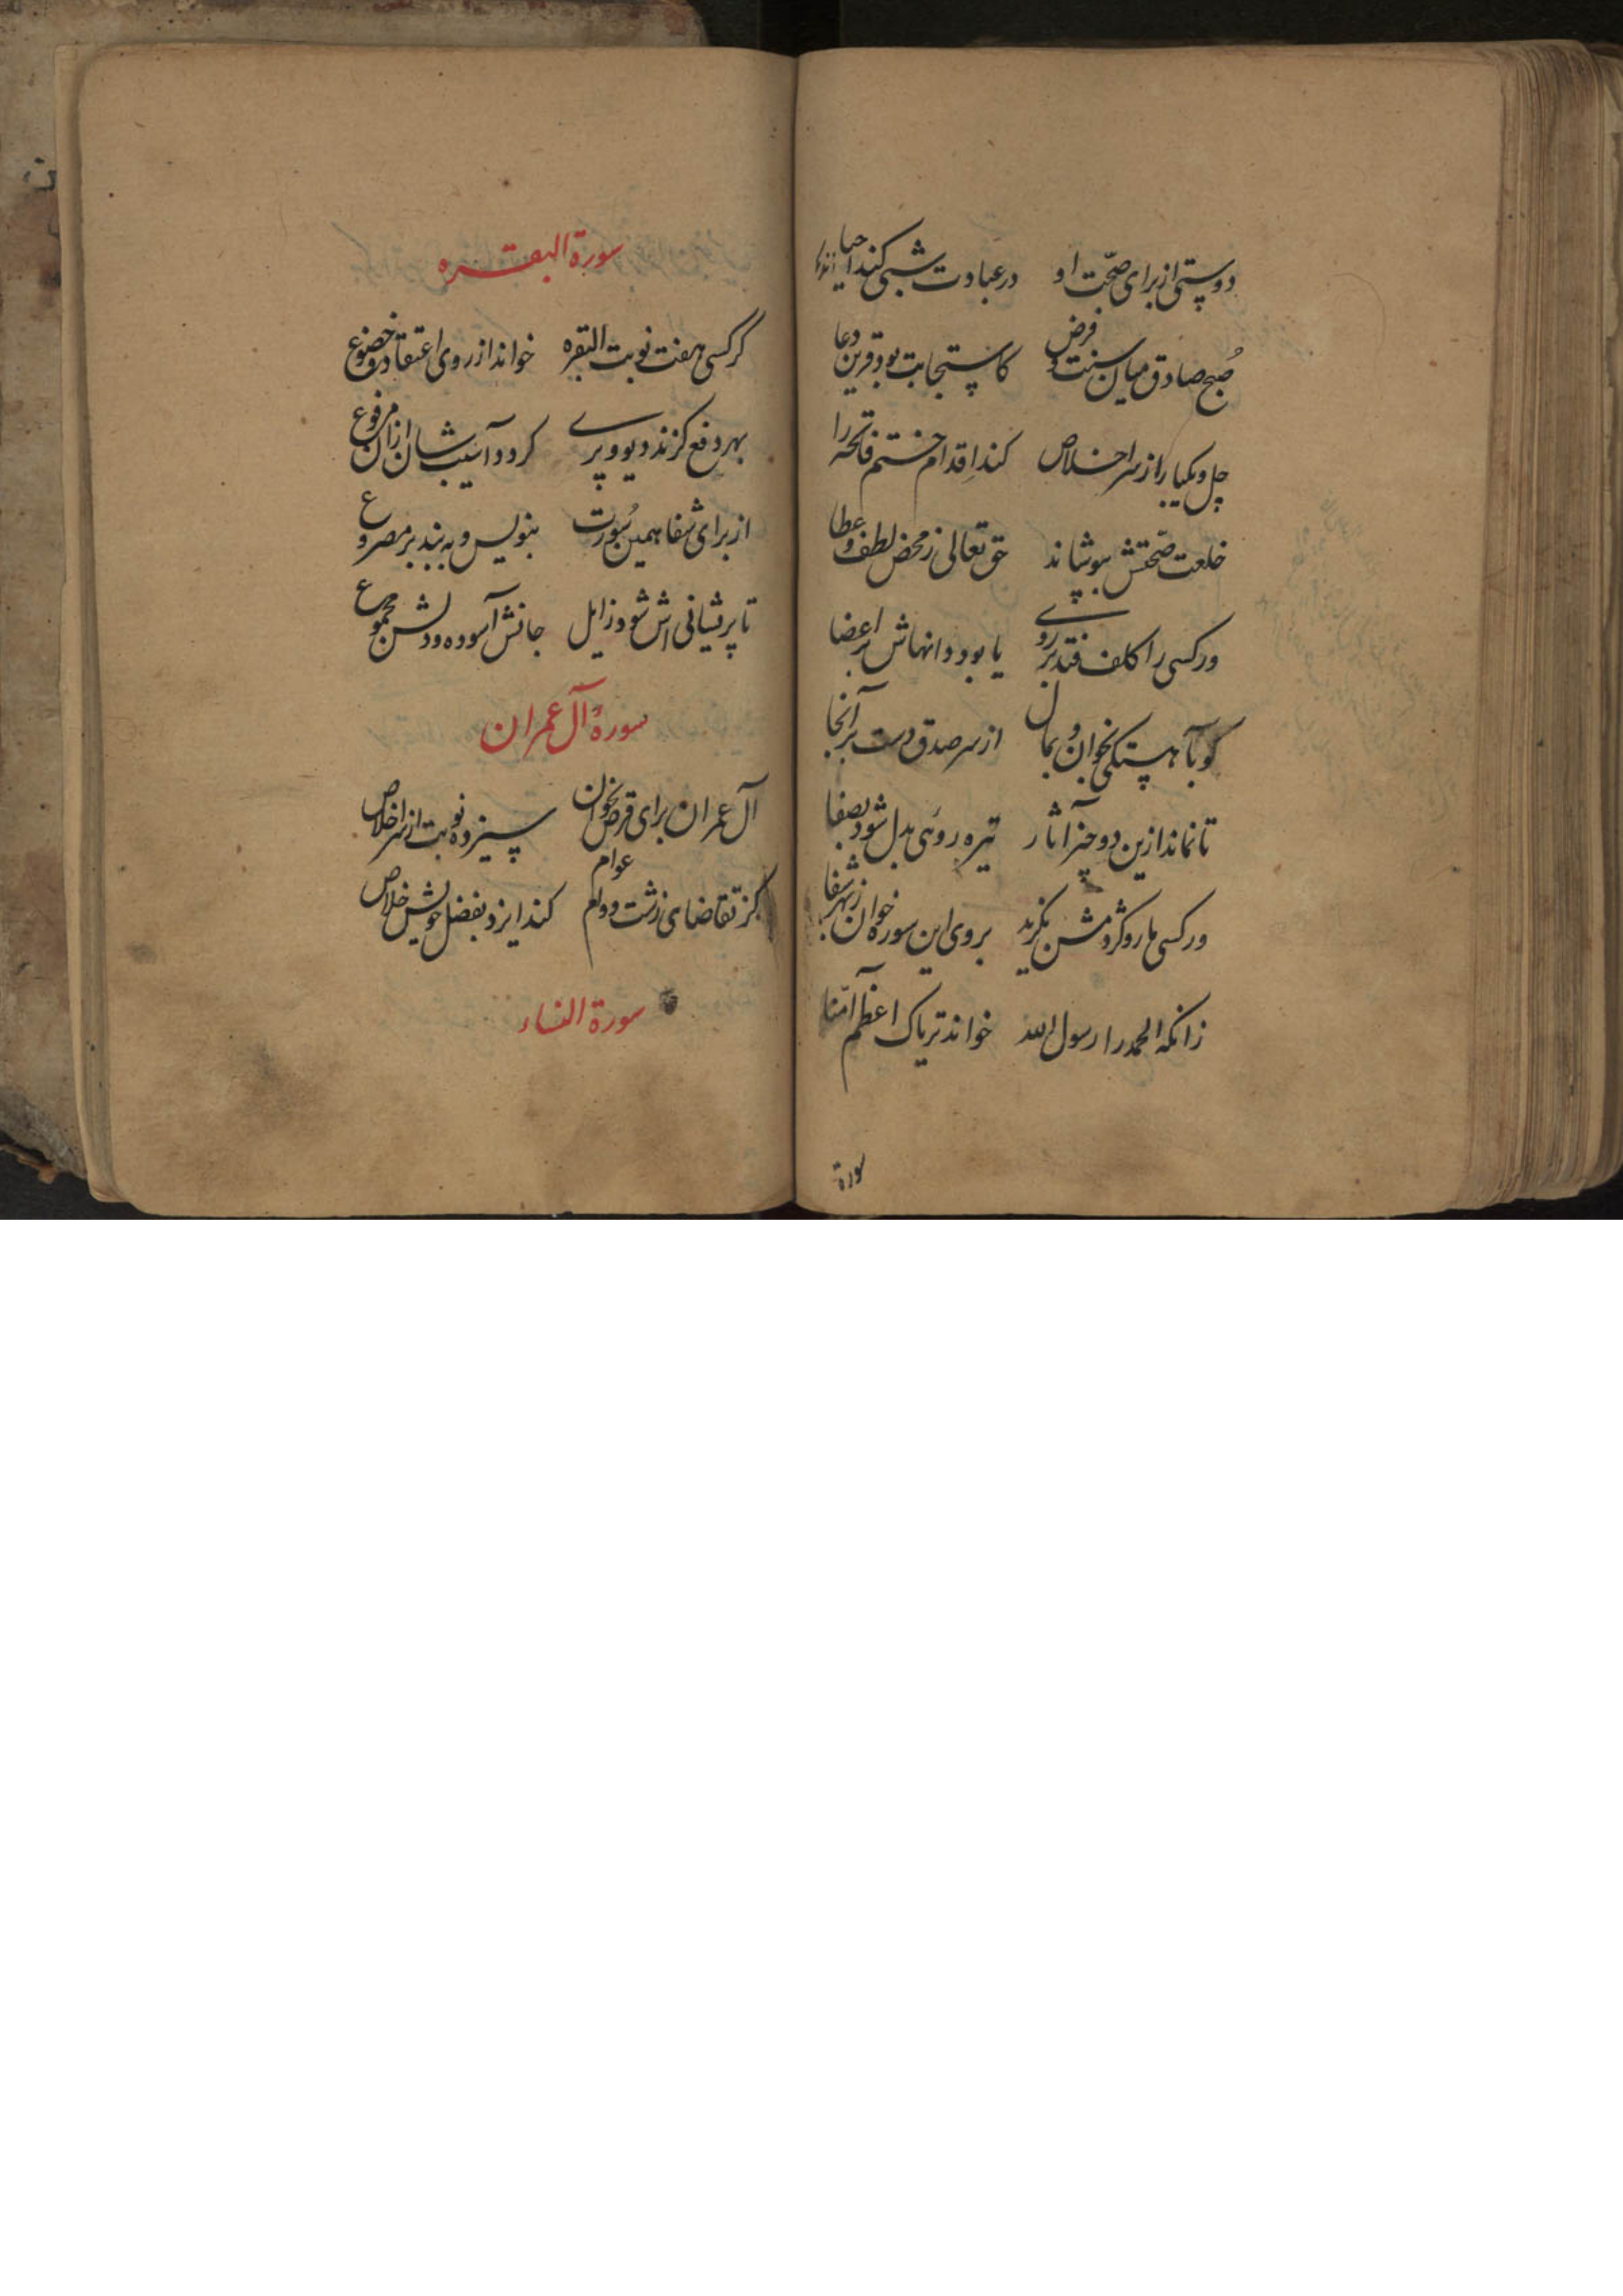 دوستی از برای صحّت او در عبادت شبی کند احیا
صُبح صادق میان سنت و فرض کاستجابت بود قرین دعا
چل و یکبار از سر اخلاص کند اقدام ختم فاتحه را
خلعت صحّتش بپوشاند حق تعالی ز محض لطف و عطا
ور کسی را کلف فتد بر روی یا بود دانهاش بر اعضا
کو بآهستگی بخوان و بمال از سر صدق دست بر آنجا
تا نماند ازین دو چیز آثار تیره روئی بدل شود بصفا
ور کسی مار و کژدمش بگزید بر وی این سوره خوان ز بهر شفا
زانکه الحمد را رسول الله خواند تریاک اعظم آمّنا
سورة
سورة البقره
گر کسی هفت نوبت البقره خواند از روی اعتقاد و خضوع
بهر دفع گزند دیو و پری گردد آسیب شان ازان مرفوع
از برای شفا همین سُورت بنویس و به بند بر مصروع
تا پریشانی اش شود زایل جانش آسوده و دلش مجموع
سورهٔ آل عمران
آل عمران برای قرض بخوان سیزده نوبت از سر اخلاص
کز تقاضای زشت و وام عوام کند ایزد بفضل خویش خلاص
سورة النساء